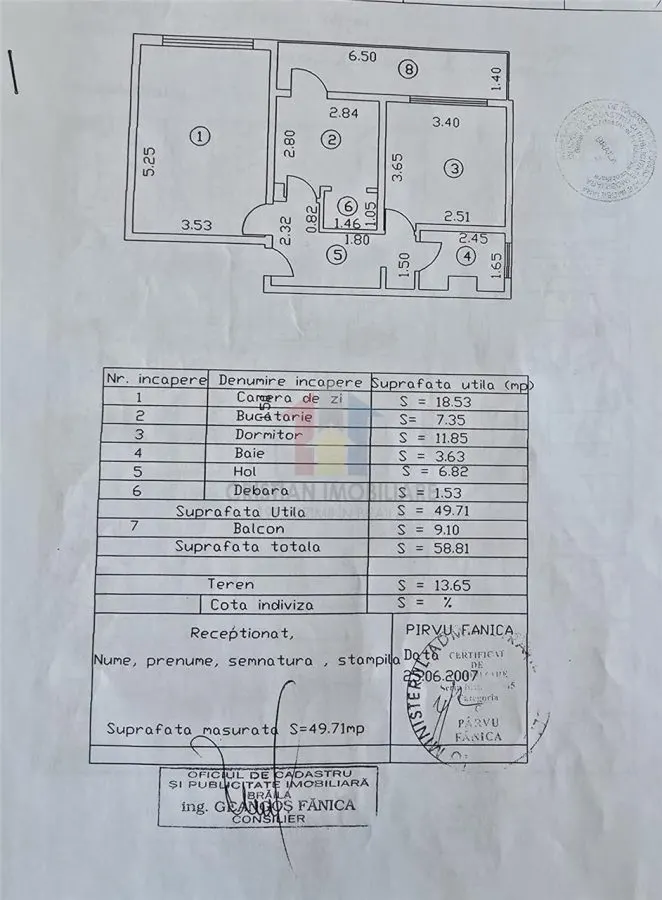 6.50
8
1.40
2.84
3.40
1
2
5.25
2.80
3.65
3
6
3.53
2.32
0.82
1.46
1.05
2.51
1.80
2.45
5
1.50
4
1.65
Nr. incapere Denumire incapere Suprafata utila (mp)
1 Camera de zi S = 18.53
2 Bucatarie S= 7.35
3 Dormitor S = 11.85
4 Baie S = 3.63
5 Hol S = 6.82
6 Debara S = 1.53
CRISTIAN IMOBILIARE
Suprafata Utila S = 49.71
7 Balcon S = 9.10
Suprafata totala S = 58.81
Teren S = 13.65
Cota indiviza S = %
Receptionat, PIRVU FANICA
Nume, prenume, semnatura , stampila Data
.06.2007
CERTIFICAT
DE
Categoria
C
PÂRVU
FĂNICA
Suprafata masurata S=49.71mp
OFICIUL DE CADASTRU
ȘI PUBLICITATE IMOBILIARĂ
BRĂILA
ing. GEANGOȘ FĂNICA
CONSILIER